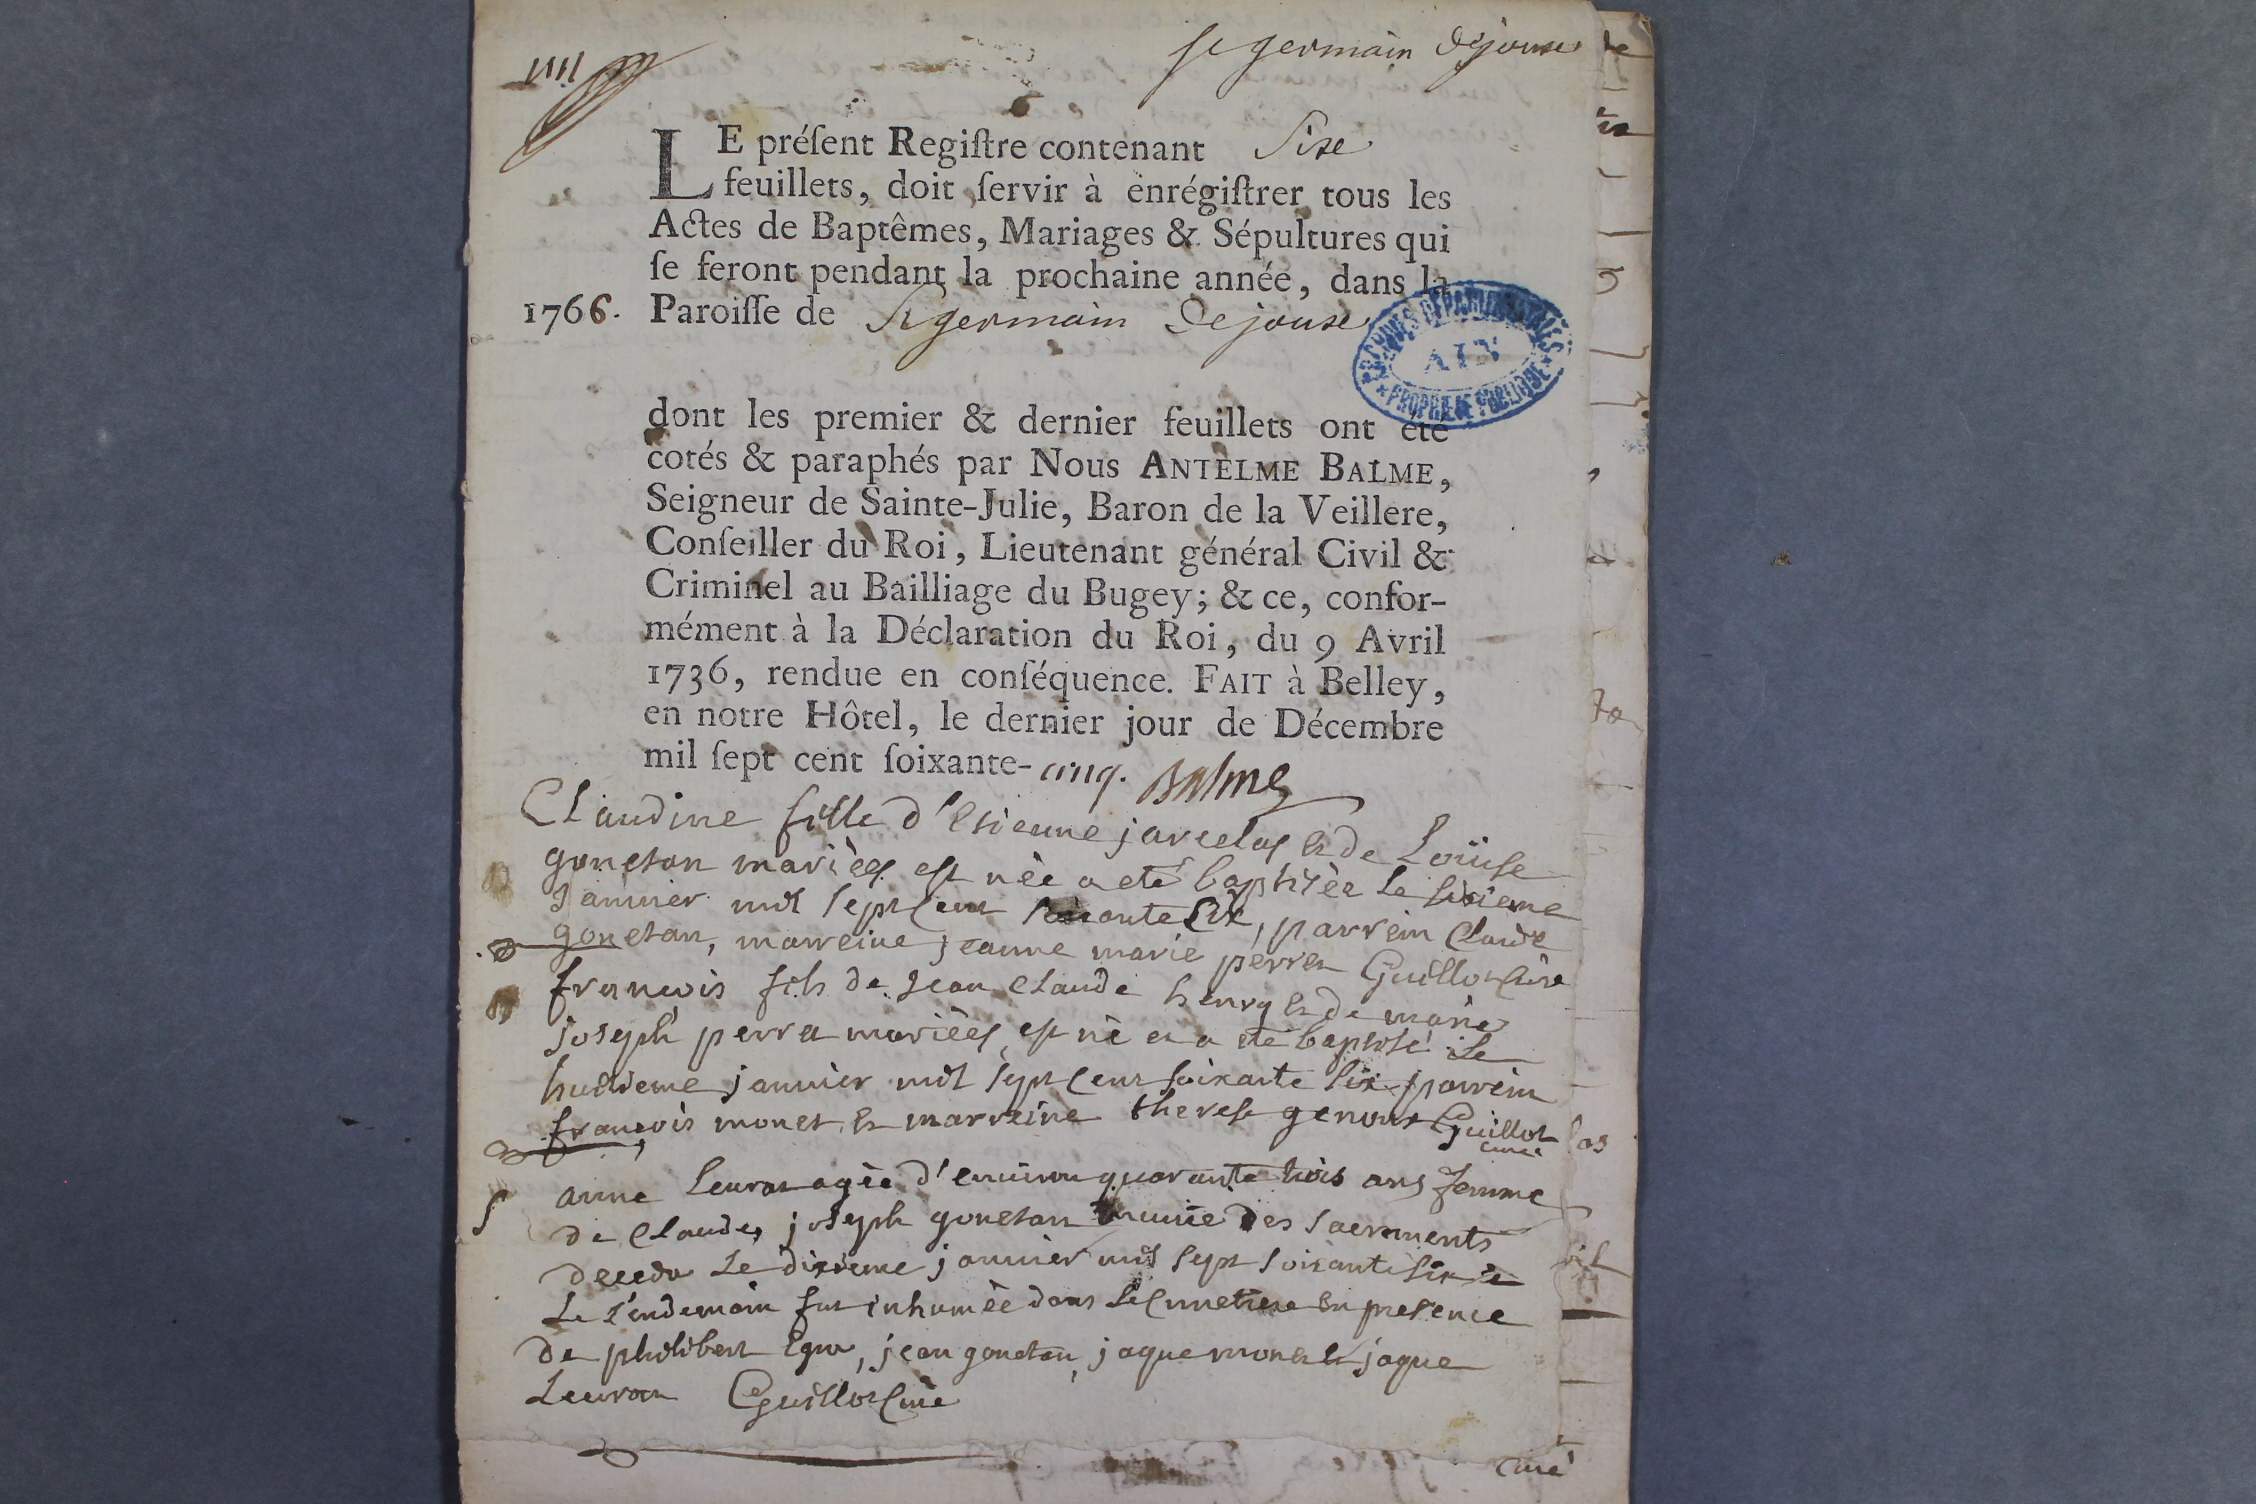 St germain Dejouxe
LE préſent Regiſtre contenant Sixe
feuillets, doit ſervir à enrégiſtrer tous les
Actes de Baptêmes, Mariages & Sépultures qui
ſe feront pendant la prochaine année, dans la
1766. Paroiſſe de St germain Dejouxe
ARCHIVES DÉPARTEMENTALES
AIN
PROPRIÉTÉ PUBLIQUE
dont les premier & dernier feuillets ont été
cotés & paraphés par Nous ANTELME BALME,
Seigneur de Sainte-Julie, Baron de la Veillere,
Conſeiller du Roi, Lieutenant général Civil &
Criminel au Bailliage du Bugey; & ce, confor-
mément à la Déclaration du Roi, du 9 Avril
1736, rendue en conſéquence. FAIT à Belley,
en notre Hôtel, le dernier jour de Décembre
mil ſept cent ſoixante-cinq. Balme
Claudine fille d'Etienne jarcelas et de Loüise
gonetan mariées est née a eté baptisée le sixieme
Janvier mil sept cent soixante six, parrein Claude
gonetan, marreine jeanne marie perret Guillot Curé
B
françois fils de Jean claude henry et de marie
joseph perra mariées, est né et a eté baptisé le
huitieme janvier mil sept cent soixante six parrein
françois monet et marreine therese genout Guillot
curé
S anne Leurat agée d'environ quarante trois ans femme
de Claude, joseph gonetan munie des sacrements
deceda le dixieme janvier mil sept soixante six et
le l'endemain fut inhumée dans le cimetiere en presence
de philibert, jean gonetan, jaque monet et jaque
Leurat Guillot Curé
curé